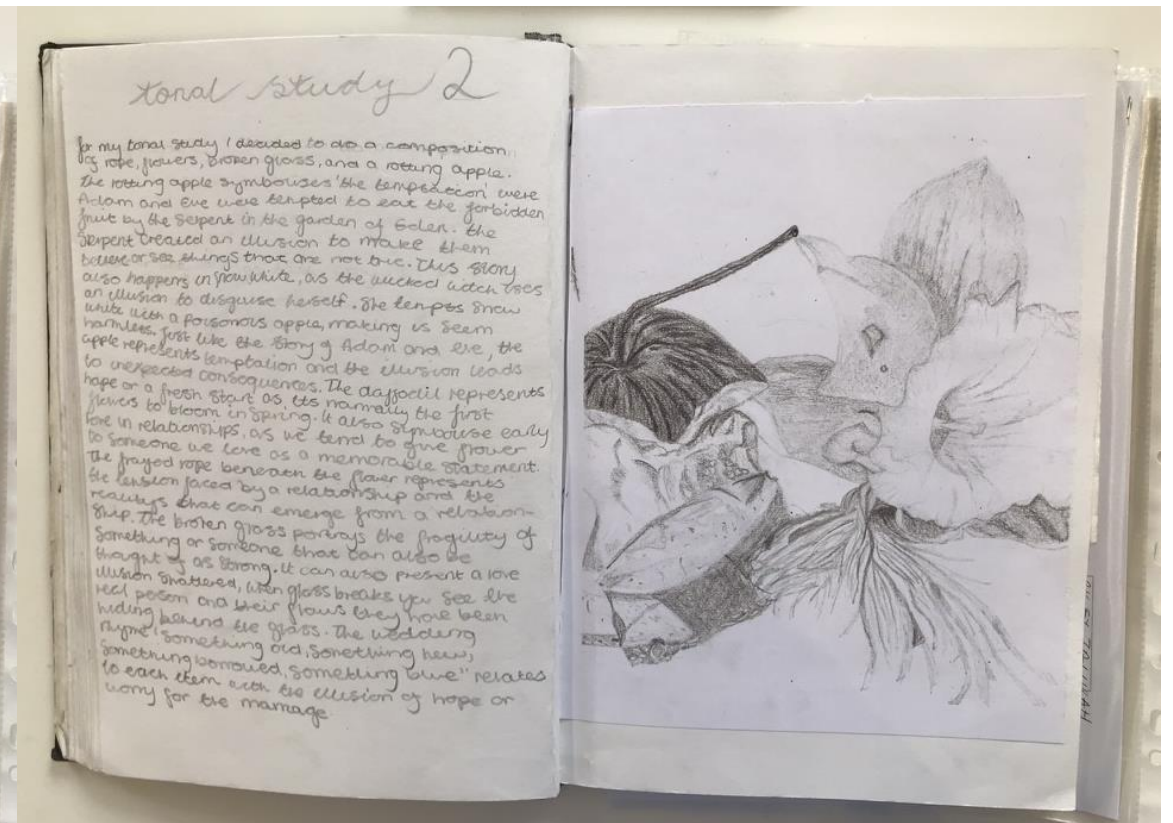 tonal study 2
for my tonal study I decided to do a composition
of rope, flowers, broken glass, and a rotting apple.
The rotting apple symbolises 'the temptation' were
Adam and Eve were tempted to eat the forbidden
fruit by the serpent in the garden of Eden. The
serpent created an illusion to make them
believe or see things that are not true. This story
also happens in Snow White, as the wicked witch uses
an illusion to disguise herself. She tempts Snow
White with a poisonous apple, making is seem
harmless. Just like the story of Adam and eve, the
apple represents temptation and the illusion leads
to unexpected consequences. The daffodil represents
hope or a fresh start as its normally the first
flowers to bloom in spring. It also symbolise early
love in relationships, as we tend to give flower
to someone we love as a memorable statement.
The frayed rope beneath the flower represents
the tension faced by a relationship and the
realitys that can emerge from a relation-
ship. The broken glass portrays the fragility of
something or someone that can also be
thought of as strong. It can also present a love
illusion shattered, when glass breaks you see the
real person and their flaws they have been
hiding behind the glass. The wedding
rhyme "something old, something new,
something borrowed, something blue" relates
to each item with the illusion of hope or
worry for the marriage